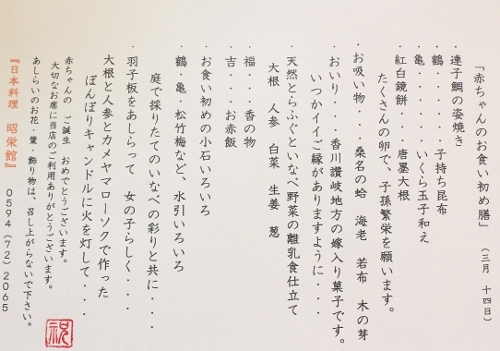 「赤ちゃんのお食い初め膳」 (三月 十四日)
・連子鯛の姿焼き
・鶴・・・・・子持ち昆布
・亀・・・・・いくら玉子和え
・紅白鏡餅・・・・唐墨大根
たくさんの卵で、子孫繁栄を願います。
・お吸い物・・・桑名の蛤 海老 若布 木の芽
・おいり・・・香川讃岐地方の嫁入り菓子です。
いつかイイご縁がありますように・・・
・天然とらふぐといなべ野菜の離乳食仕立て
大根 人参 白菜 生姜 葱
・福・・・香の物
・吉・・・お赤飯
・お食い初めの小石いろいろ
・鶴・亀・松竹梅など、水引いろいろ
庭で採りたてのいなべの彩りと共に・・・
・羽子板をあしらって 女の子らしく・・・
大根と人参とカメヤマローソクで作った
ぼんぼりキャンドルに火を灯して・・・
赤ちゃんの ご誕生 おめでとうございます。
大切なお席に当店のご利用ありがとうございます。
あしらいのお花・葉・飾り物は、召し上がらないで下さい。
『日本料理 昭栄館』 0594(72)2065
祝